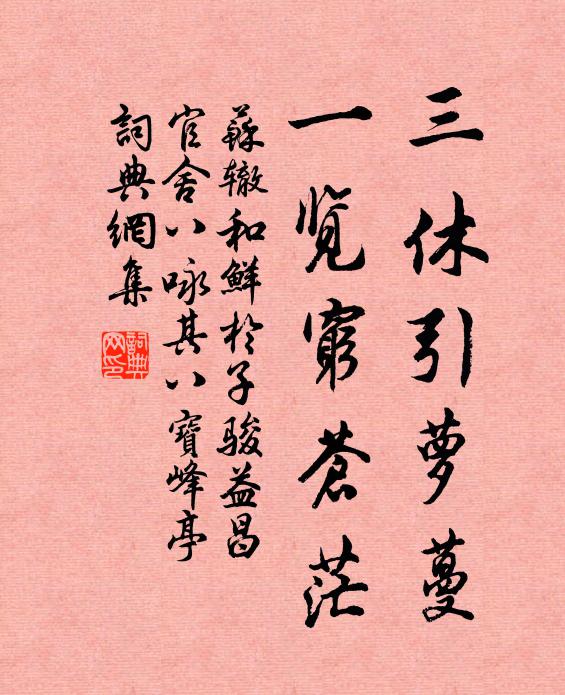 三休引萝蔓
一览穷苍茫
蘇辙和鮮於子骏益昌
官舍八咏其八寶峰亭
詞典網集
詞典网印